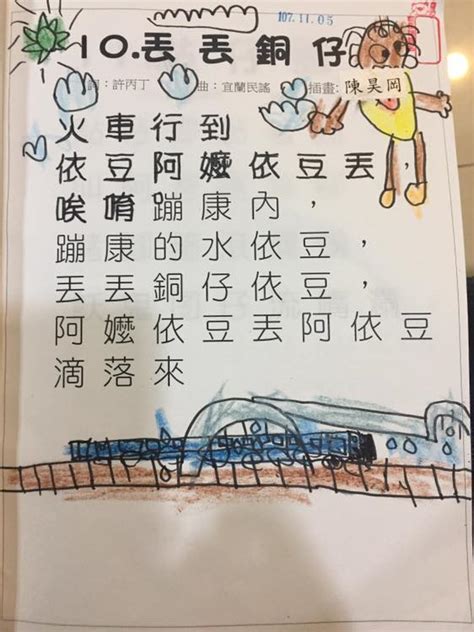 107.11.05
10.丟丟銅仔
詞：許丙丁 曲：宜蘭民謠 插畫：陳昊岡
火車行到
依豆阿嬤依豆丟，
唉唷蹦康內，
蹦康的水依豆，
丟丟銅仔依豆，
阿嬤依豆丟阿依豆
滴落來